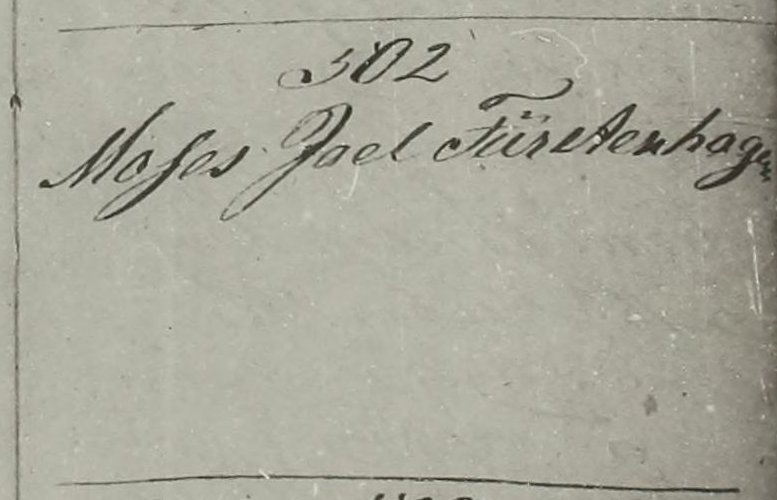 302
Moses Joel Fürstenhagen